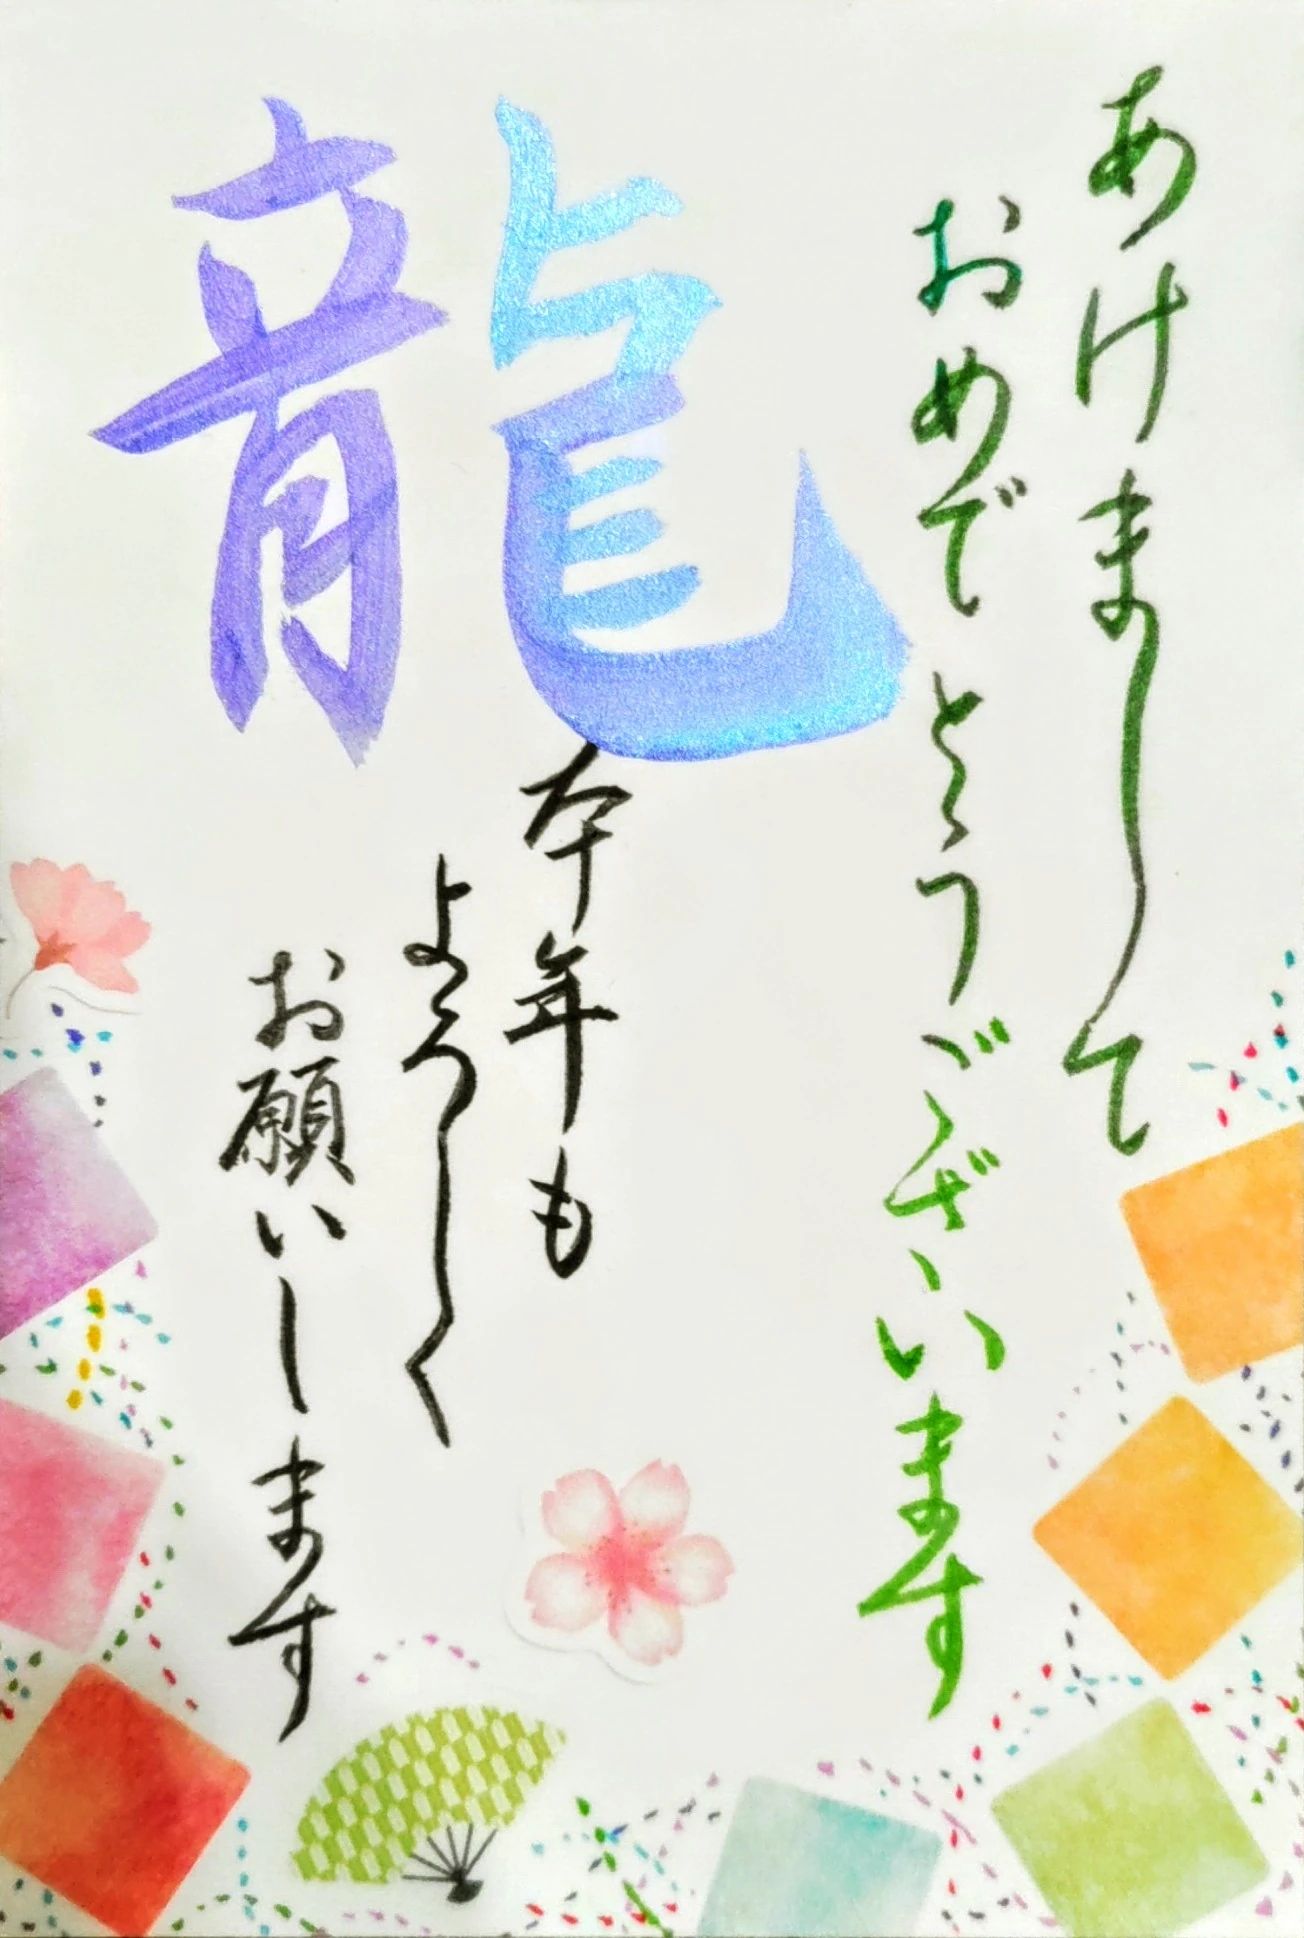 あけまして
おめでとうございます
龍
本年も
よろしく
お願いします